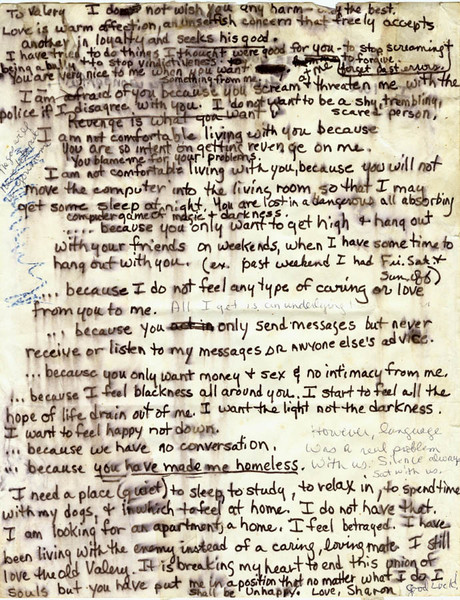 To Valery I do not wish you any harm only the best.
Love is warm affection, an unselfish concern that freely accepts
another in loyalty and seeks his good.
I have tried to do things I thought were good for you - to stop screaming &
being a bully & to stop vindictiveness to forgive
You are very nice to me when you want at me forget past errors.
something from me.
I am afraid of you because you scream & threaten me with the
police if I disagree with you. I do not want to be a shy, trembling,
Revenge is what you want scared person.
I am not comfortable living with you because
you are so intent on getting revenge on me.
You blame me for your problems.
I am not comfortable living with you, because you will not
move the computer into the living room so that I may
get some sleep at night. You are lost in a dangerous all absorbing
computer game of magic & darkness.
..... because you only want to get high & hang out
with your friends on weekends, when I have some time to
hang out with you. (ex. past weekend I had Fri. Sat &
Sun. off)
... because I do not feel any type of caring or love
from you to me. All I get is an underlying
... because you only send messages but never
receive or listen to my messages OR ANYone else's advice.
... because you only want money & sex & no intimacy from me.
... because I feel blackness all around you. I start to feel all the
hope of life drain out of me. I want the light not the darkness.
I want to feel happy not down.
However, language
... because we have no conversation.
was a real problem
... because you have made me homeless.
with us. Silence always
sat with us.
I need a place (quiet) to sleep, to study, to relax in, to spend time
with my dogs, & in which to feel at home. I do not have that.
I am looking for an apartment, a home. I feel betrayed. I have
been living with the enemy instead of a caring, loving mate. I still
love the old Valery. It is breaking my heart to end this union of
souls but you have put me in a position that no matter what I do I
shall be unhappy. Love, Sharon
Good Luck.